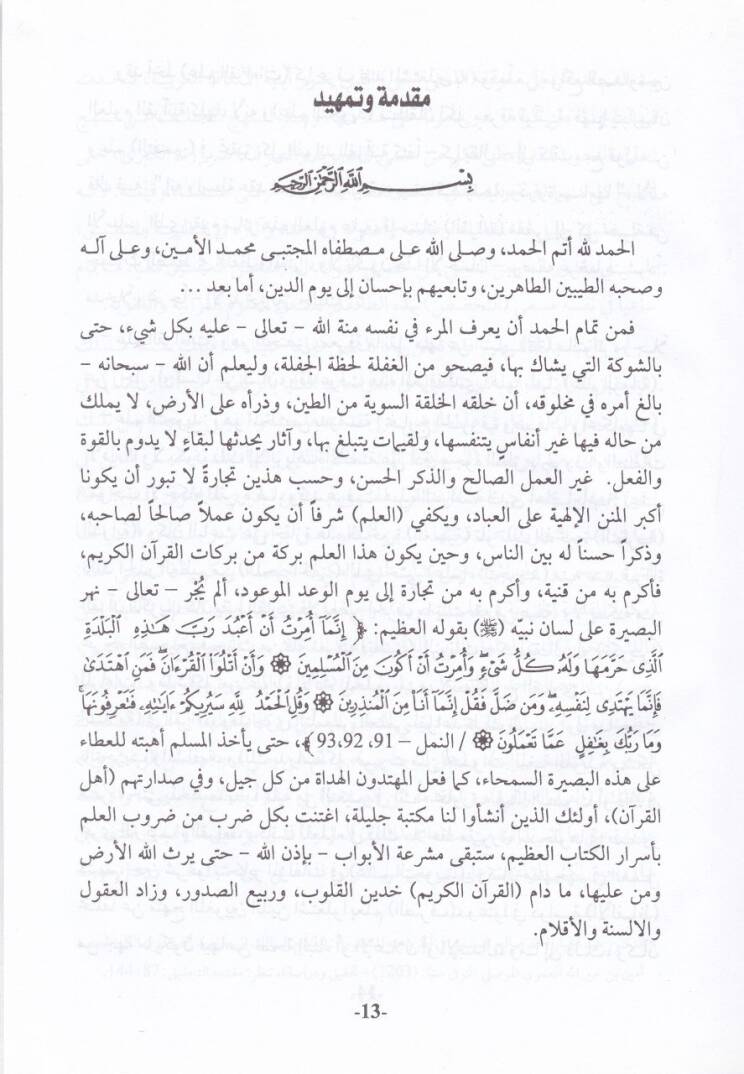 مقدمة وتمهيد
بسم الله الرحمن الرحيم
الحمد لله أتم الحمد، وصلى الله على مصطفاه المجتبى محمد الأمين، وعلى آله
وصحبه الطيبين الطاهرين، وتابعيهم بإحسان إلى يوم الدين، أما بعد ...
فمن تمام الحمد أن يعرف المرء في نفسه منة الله – تعالى – عليه بكل شيء، حتى
بالشوكة التي يشاك بها، فيصحو من الغفلة لحظة الجفلة، وليعلم أن الله – سبحانه –
بالغ أمره في مخلوقه، أن خلقه الخلقة السوية من الطين، وذرأه على الأرض، لا يملك
من حاله فيها غير أنفاسٍ يتنفسها، ولقيمات يتبلغ بها، وآثار يحدثها لبقاءٍ لا يدوم بالقوة
والفعل. غير العمل الصالح والذكر الحسن، وحسب هذين تجارةً لا تبور أن يكونا
أكبر المنن الإلهية على العباد، ويكفي (العلم) شرفاً أن يكون عملاً صالحاً لصاحبه،
وذكراً حسناً له بين الناس، وحين يكون هذا العلم بركة من بركات القرآن الكريم،
فأكرم به من قنية، وأكرم به من تجارة إلى يوم الوعد الموعود، ألم يُجْرِ – تعالى – نهر
البصيرة على لسان نبيّه (ﷺ) بقوله العظيم: ﴿ إِنَّمَآ أُمِرْتُ أَنْ أَعْبُدَ رَبَّ هَـٰذِهِ ٱلْبَلْدَةِ
ٱلَّذِى حَرَّمَهَا وَلَهُۥ كُلُّ شَىْءٍ ۖ وَأُمِرْتُ أَنْ أَكُونَ مِنَ ٱلْمُسْلِمِينَ ۞ وَأَنْ أَتْلُوَا۟ ٱلْقُرْءَانَ ۖ فَمَنِ ٱهْتَدَىٰ
فَإِنَّمَا يَهْتَدِى لِنَفْسِهِۦ ۖ وَمَن ضَلَّ فَقُلْ إِنَّمَآ أَنَا۠ مِنَ ٱلْمُنذِرِينَ ۞ وَقُلِ ٱلْحَمْدُ لِلَّهِ سَيُرِيكُمْ ءَايَـٰتِهِۦ فَتَعْرِفُونَهَا ۚ
وَمَا رَبُّكَ بِغَـٰفِلٍ عَمَّا تَعْمَلُونَ ۞ / النمل – 91، 92، 93 ﴾، حتى يأخذ المسلم أهبته للعطاء
على هذه البصيرة السمحاء، كما فعل المهتدون الهداة من كل جيل، وفي صدارتهم (أهل
القرآن)، أولئك الذين أنشأوا لنا مكتبة جليلة، اغتنت بكل ضرب من ضروب العلم
بأسرار الكتاب العظيم، ستبقى مشرعة الأبواب – بإذن الله – حتى يرث الله الأرض
ومن عليها، ما دام (القرآن الكريم) خدين القلوب، وربيع الصدور، وزاد العقول
والالسنة والأقلام.
-13-